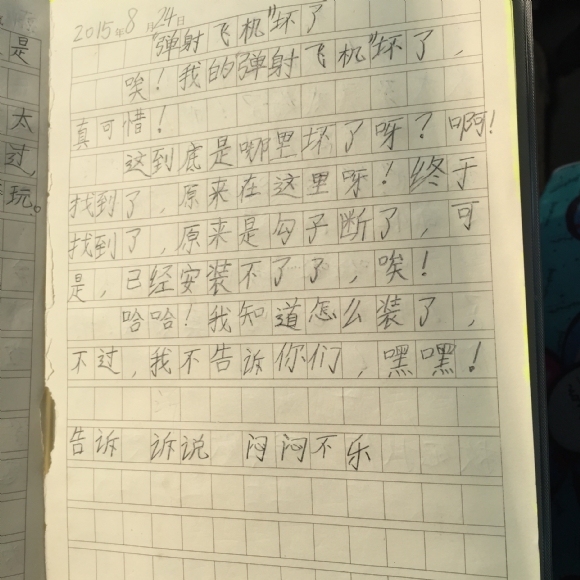 是
太
过，
玩。
2015年8月24日
“弹射飞机”坏了
唉！我的“弹射飞机”坏了，
真可惜！
这到底是哪里坏了呀？啊！
找到了，原来在这里呀！终于
找到了，原来是勾子断了，可
是，已经安装不了了，唉！
哈哈！我知道怎么装了，
不过，我不告诉你们，嘿嘿！
告诉 诉说 闷闷不乐